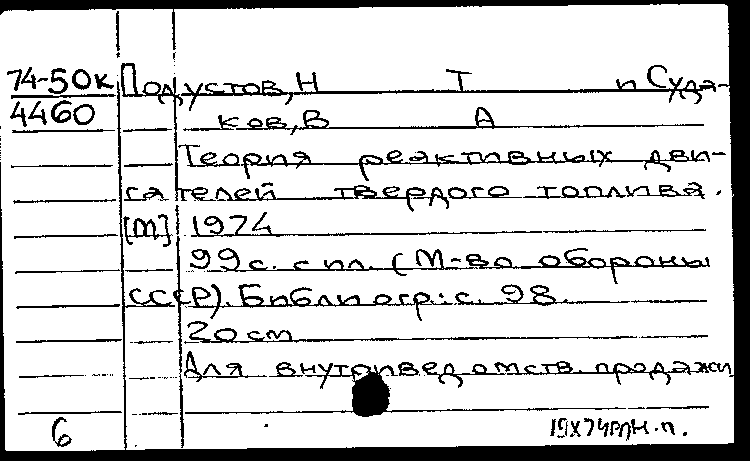 74-50к Подустов, Н Т и Суда-
4460 ков, В А
Теория реактивных дви-
гателей твердого топлива.
[М] 1974
99с. с ил. (М-во обороны
СССР). Библиогр: с. 98.
20см
Для внутриведомств. продажи
6